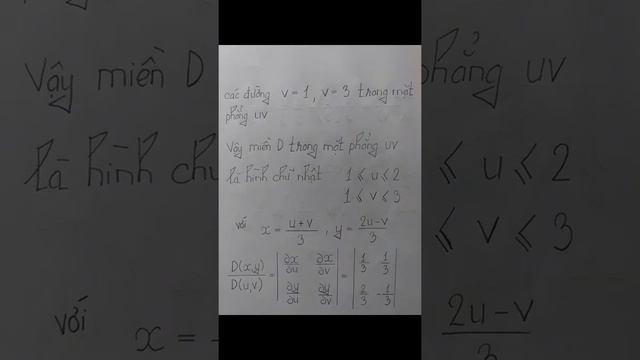 các đường v = 1, v = 3 trong mặt
phẳng uv
Vậy miền D trong mặt phẳng uv
là hình chữ nhật 1 ⩽ u ⩽ 2
1 ⩽ v ⩽ 3
với x = (u+v)/3 , y = (2u-v)/3
D(x,y)/D(u,v) = | ∂x/∂u ∂x/∂v | = | 1/3 1/3 |
| ∂y/∂u ∂y/∂v | | 2/3 -1/3 |